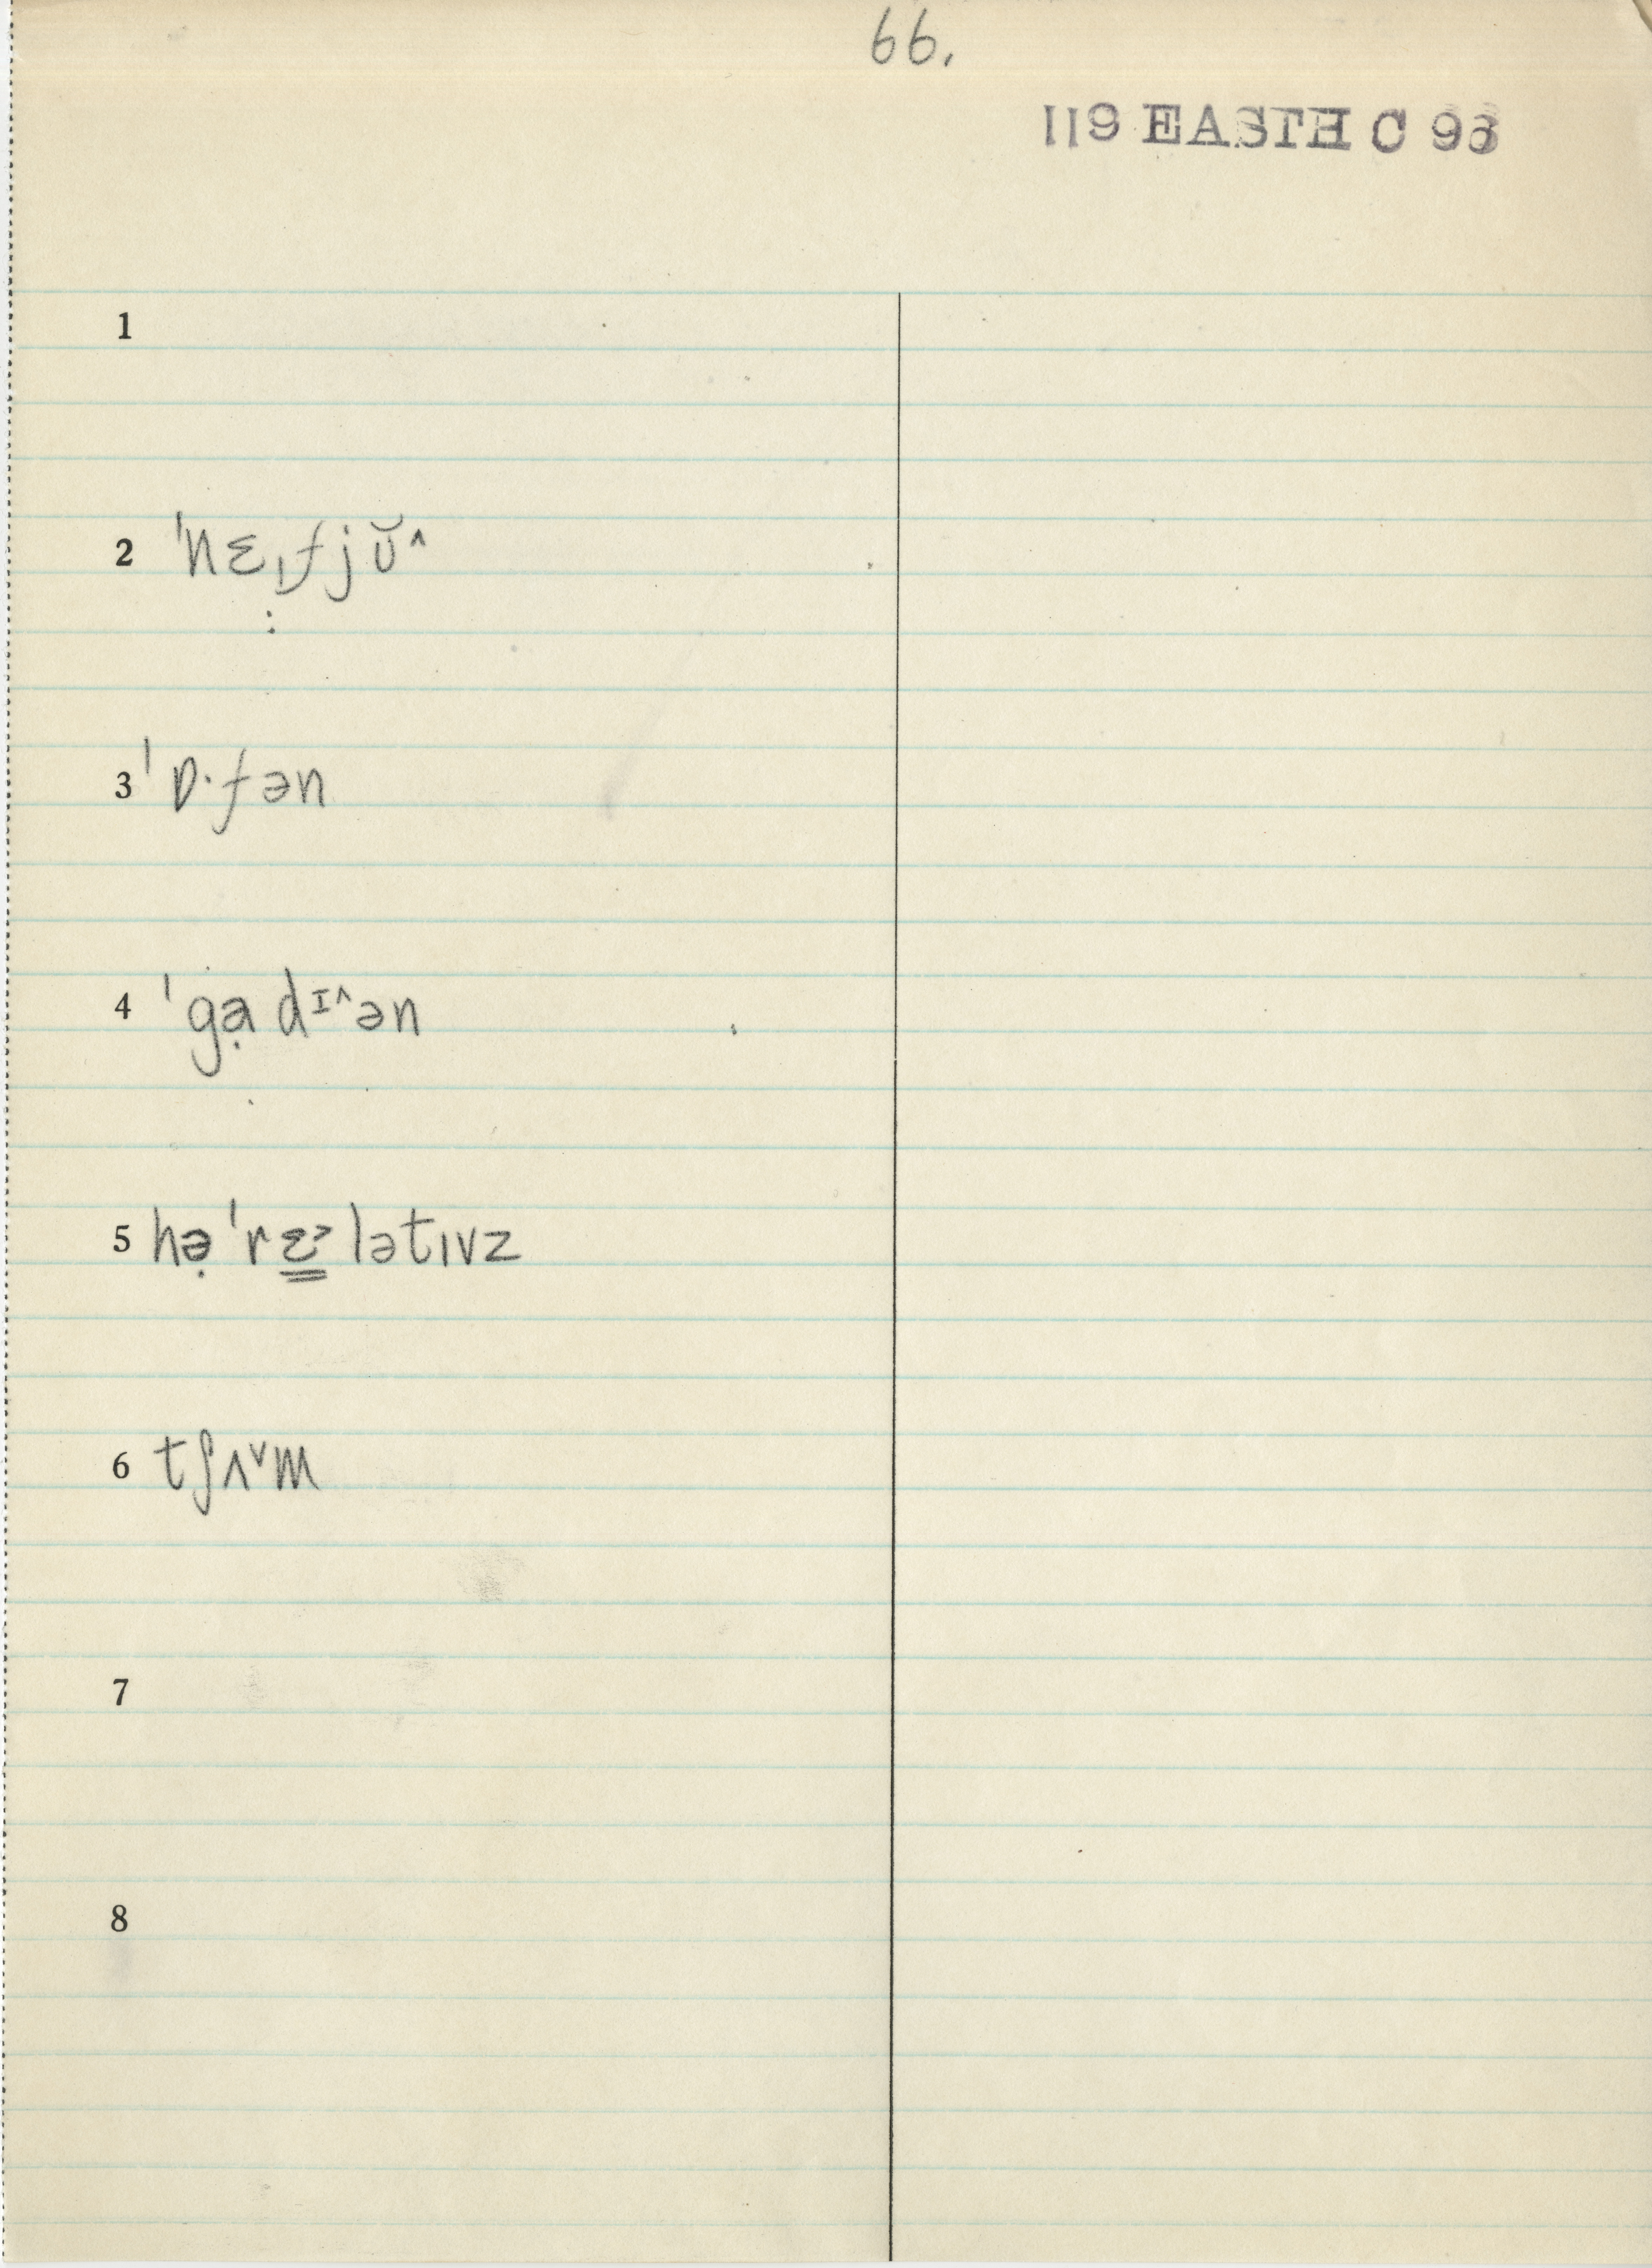 66.
119 EASTH C 93
1
2 ˈnɛˌfjŭ^
:
3 ˈɒ·fən
4 ˈgạdɪ^ən
5 hə̣ˈrɛ̳˃lətɪvz
6 tʃʌ˅m
7
8